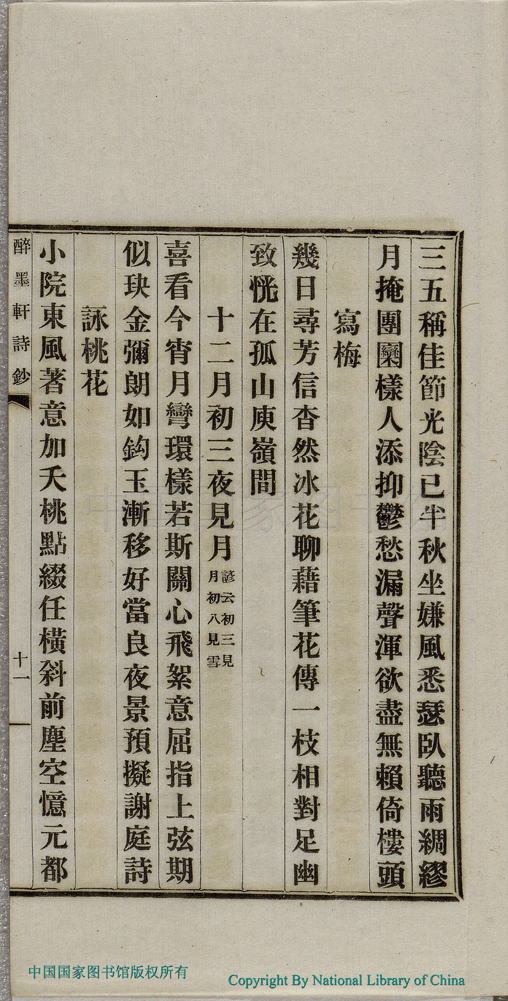 三五稱佳節光陰已半秋坐嫌風悉瑟臥聽雨綢繆
月掩團圞樣人添抑鬱愁漏聲渾欲盡無賴倚樓頭
寫梅
幾日尋芳信杳然冰花聊藉筆花傳一枝相對足幽
致恍在孤山庾嶺間
十二月初三夜見月諺云初三見
月初八見雪
喜看今宵月彎環樣若斯關心飛絮意屈指上弦期
似玦金彌朗如鈎玉漸移好當良夜景預擬謝庭詩
詠桃花
小院東風著意加夭桃點綴任橫斜前塵空憶元都
醉墨軒詩鈔
十一
中国国家图书馆版权所有
Copyright By National Library of China